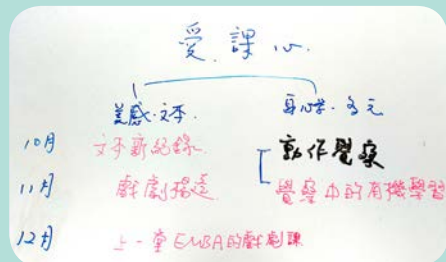 受.課心.
美感.文本 身心學.多元
10月 文本新紀錄. 動作覺察
11月 戲劇搧遠 覺察中的有機學習
12月 上一堂EMBA的戲劇課